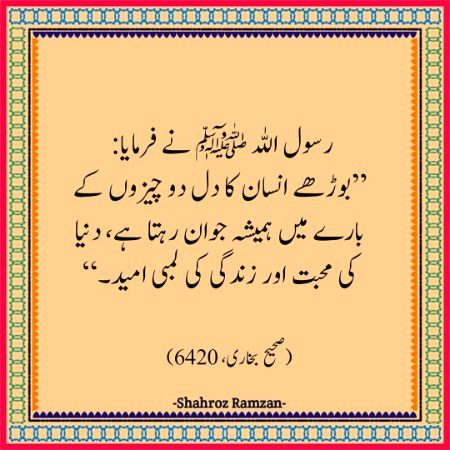 رسول اللہ ﷺ نے فرمایا:
”بوڑھے انسان کا دل دو چیزوں کے
بارے میں ہمیشہ جوان رہتا ہے، دنیا
کی محبت اور زندگی کی لمبی امید۔“
(صحیح بخاری، 6420)
-Shahroz Ramzan-